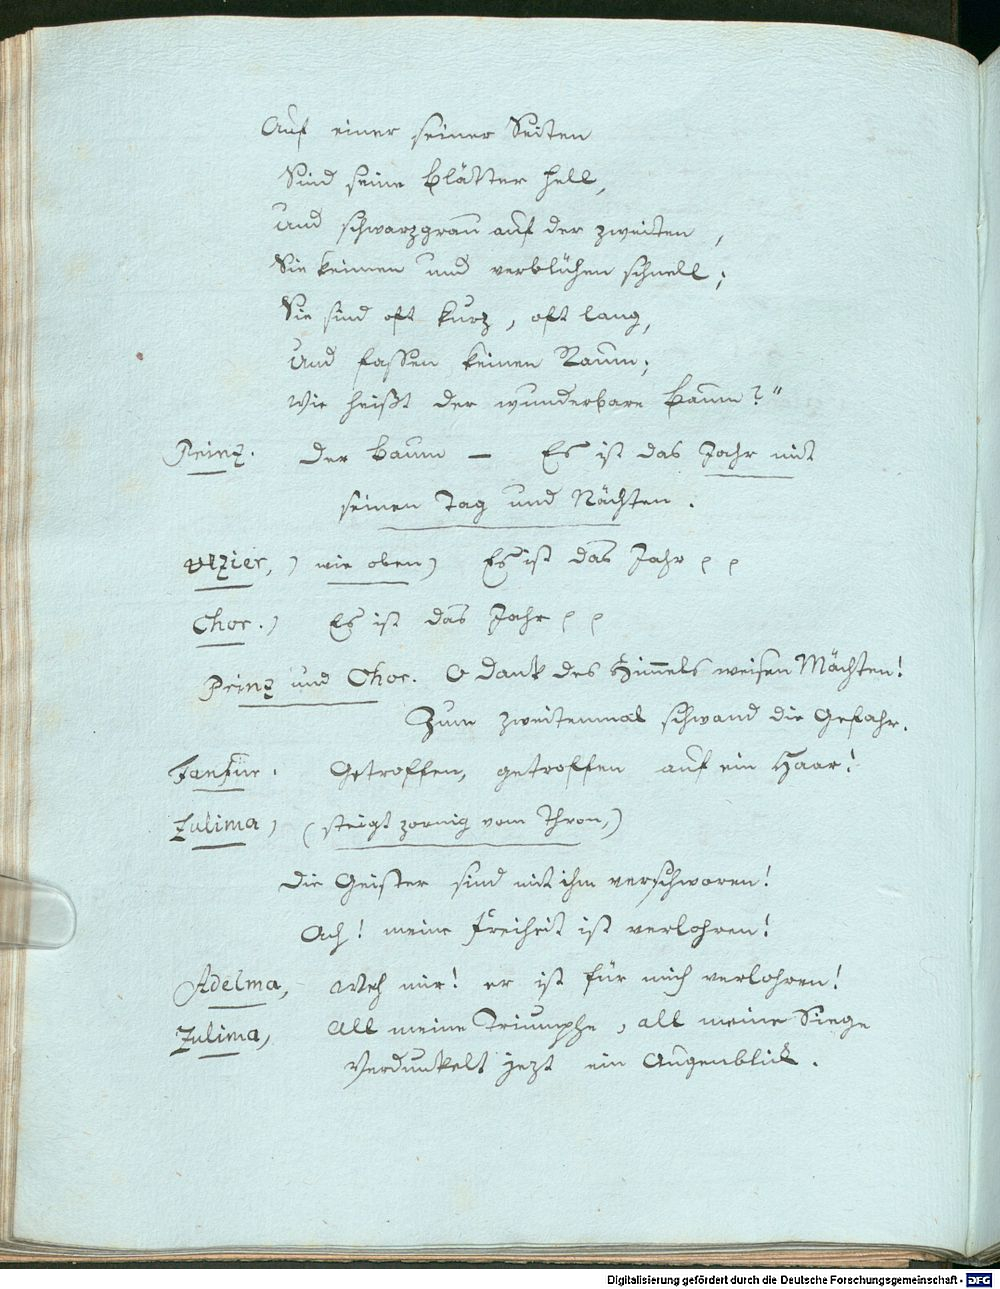 Auf einer seiner Seiten
Sind seine Blätter hell,
Und schwarzgrau auf der zweiten,
Sie keimen und verblühen schnell;
Sie sind oft kurz, oft lang,
Und fassen keinen Raum;
Wie heißt der wunderbare Baum?"
Prinz. Der Baum — Es ist das Jahr mit
seinen Tag und Nächten.
Vezier, ) wie oben) Es ist das Jahr
Chor.) Es ist das Jahr
Prinz und Chor. O Dank des Him̄els weisen Mächten!
Zum zweitenmal schwand die Gefahr.
Getroffen, getroffen auf ein Haar!
Zulima, (steigt zornig vom Thron,)
Die Geister sind mit ihm verschworen!
Ach! meine Freiheit ist verlohren!
Adelma, Weh mir! er ist für mich verlohren!
Zulima, All meine Triumphe, all meine Siege
Verdunkelt jezt ein Augenblick.
Digitalisierung gefördert durch die Deutsche Forschungsgemeinschaft - DFG